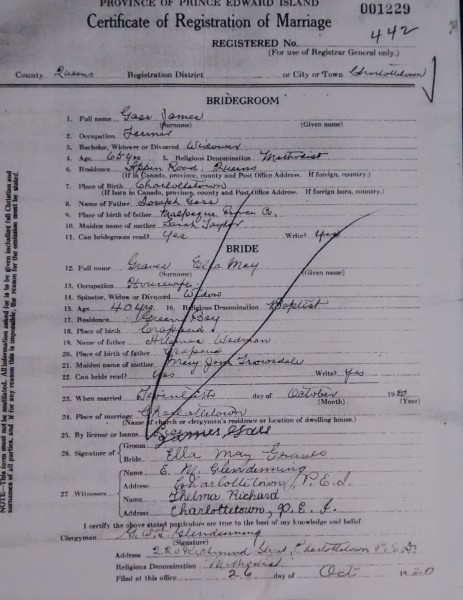 PROVINCE OF PRINCE EDWARD ISLAND
001229
Certificate of Registration of Marriage
REGISTERED No. 442
(For use of Registrar General only.)
County Queens Registration District or City or Town Charlottetown
BRIDEGROOM
1. Full name Goss James
(Surname) (Given name)
2. Occupation Farmer
3. Bachelor, Widower or Divorced Widower
4. Age 65 yrs 5. Religious Denomination Methodist
6. Residence Appin Road, Queens
(If in Canada, province, county and Post Office Address. If foreign, country.)
7. Place of Birth Charlottetown
(If born in Canada, province, county and Post Office Address. If foreign born, country.)
8. Name of Father Joseph Goss
9. Place of birth of father Malpeque Prince Co.
10. Maiden name of mother Sarah Taylor
11. Can bridegroom read? Yes Write? Yes
BRIDE
12. Full name Graves Ella May
(Surname) (Given name)
13. Occupation Housewife
14. Spinster, Widow or Divorced Widow
15. Age 40 yrs. 16. Religious Denomination Baptist
17. Residence Green Bay
18. Place of birth Crapaud
19. Name of father
20. Place of birth of father Crapaud
21. Maiden name of mother Mary Jane Trowsdale
22. Can bride read? Yes Write? Yes
23. When married day of October 1920
(Month) (Year)
24. Place of marriage Charlottetown
(Name of church or clergyman's residence or location of dwelling house.)
25. By license or banns License
26. Signature of Groom James Goss
Bride Ella May Graves
27 Witnesses Name E. M. Glendenning
Address Charlottetown, P.E.I.
Name Thelma Richard
Address Charlottetown, P.E.I.
I certify the above stated particulars are true to the best of my knowledge and belief.
Clergyman Glendenning
(Signature)
Address 220 Richmond Street, Charlottetown P.E.I.
Religious Denomination Methodist
Filed at this office 26 day of Oct 1920
NOTE—This form must not be mutilated. All information asked for is to be given including full Christian and
surnames of all parties, and if for any reason this is impossible, the reason for the omission must be stated.